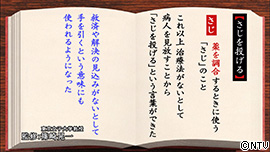 【さじを投げる】
さじ
薬を調合するときに使う
「さじ」のこと
これ以上治療法がないとして
病人を見放すことから
「さじを投げる」という言葉ができた
救済や解決の見込みがないとして
手を引くという意味にも
使われるようになった
©NTV